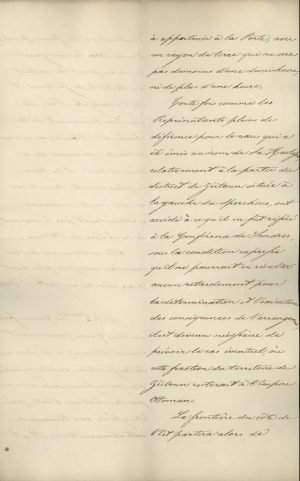 à appartenir à la Porte; avec
un rayon de terre qui ne sera
pas de moins d'une demi heure,
ni de plus d'une heure.
Toute fois comme les
Représentants pleins de
déférence pour le vœu qui a
été émis au nom de la Hautesse
relativement à la partie du
district de Zeitoun située à
la gauche du Sperchius, ont
accédé à ce qu'il en fut référé
à la Conférence de Londres,
sous la condition expresse
qu'il ne pourrait en résulter
aucun retardement pour
la détermination et l'exécution
des conséquences de l'arrangem
il est devenu nécessaire de
prévoir le cas éventuel, où
cette fraction du territoire de
Zeitoun resterait à l'Empire
Ottoman.
La frontière du côté de
l'Est partira alors de